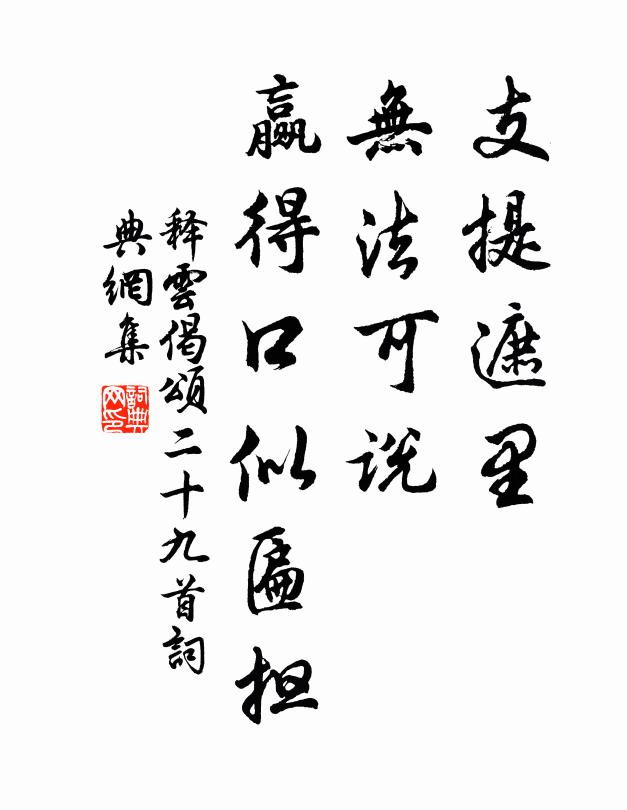 支提遮里
無法可説
贏得口似匾担
释雲偈頌二十九首詞
典網集
詞典網印